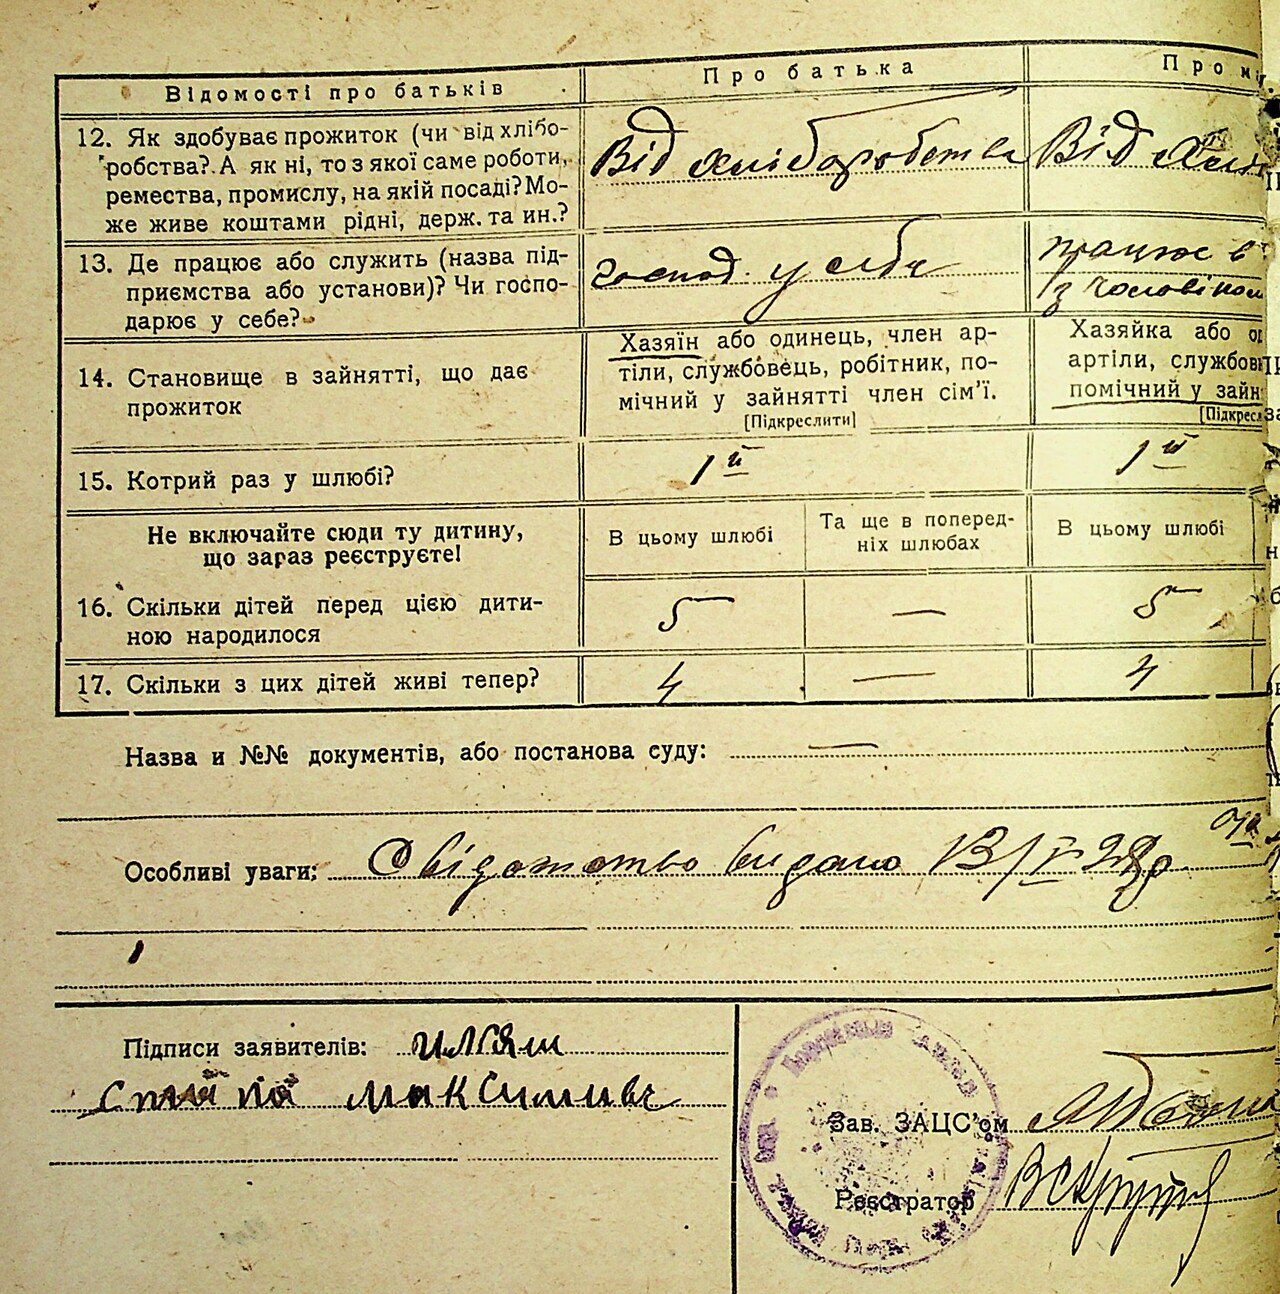 Відомості про батьків
Про батька
Про м
12. Як здобуває прожиток (чи від хлібо-
робства?. А як ні, то з якої саме роботи,
ремества, промислу, на якій посаді? Мо-
же живе коштами рідні, держ. та ин.?
Від хліборобства
Від хліб
13. Де працює або служить (назва під-
приємства або установи)? Чи госпо-
дарює у себе?
господ. у себе
працює в
з чоловіком
14. Становище в зайнятті, що дає
прожиток
Хазяїн або одинець, член ар-
тіли, службовець, робітник, по-
мічний у зайнятті член сім’ї.
[Підкреслити]
Хазяйка або од
артіли, службов
помічний у зайн
[Підкресл
15. Котрий раз у шлюбі?
1й
1й
Не включайте сюди ту дитину,
що зараз реєструєте!
В цьому шлюбі
Та ще в поперед-
ніх шлюбах
В цьому шлюбі
16. Скільки дітей перед цією дити-
ною народилося
5 — 5
17. Скільки з цих дітей живі тепер?
4 — 4
Назва и №№ документів, або постанова суду: —
Особливі уваги: Свідотство видано 13/IV 28р
Підписи заявителів:
Максимивс
Зав. ЗАЦС’ом
Реєстратор